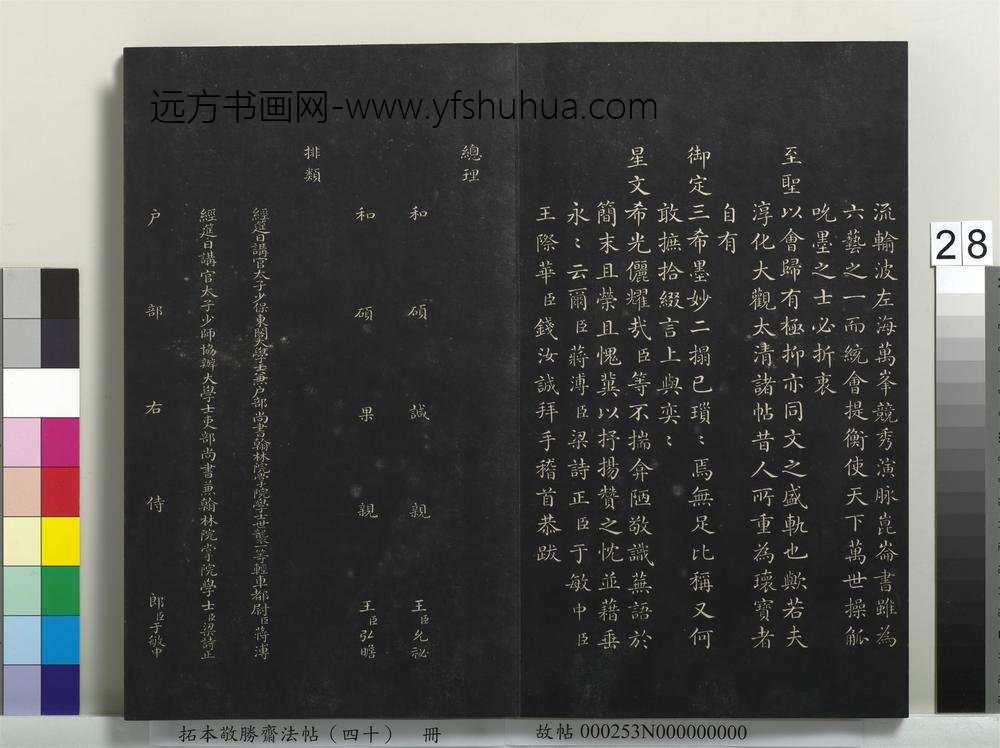 远方书画网-www.yfshuhua.com
流輸波左海萬峯競秀演脉崑崙書雖為
六藝之一而統會提衡使天下萬世操觚
吮墨之士必折衷
至聖以會歸有極抑亦同文之盛軌也歟若夫
淳化大觀太清諸帖昔人所重為瓌寶者
自有
御定三希墨妙二搨已瑣〻焉無足比稱又何
敢摭拾綴言上與奕〻
星文希光儷耀哉臣等不揣弇陋敬識蕪語於
簡末且榮且愧冀以抒揚贊之忱並藉垂
永〻云爾臣蔣溥臣梁詩正臣于敏中臣
王際華臣錢汝誠拜手稽首恭跋
總理
和碩諴親王臣允祕
和碩果親王臣弘瞻
排類
經筵日講官太子少保東閣大學士兼戶部尚書翰林院掌院學士世襲一等輕車都尉臣蔣溥
經筵日講官太子少師協辦大學士吏部尚書兼翰林院掌院學士臣梁詩正
戶部右侍郎臣于敏中
28
拓本敬勝齋法帖（四十） 冊
故帖 000253N000000000